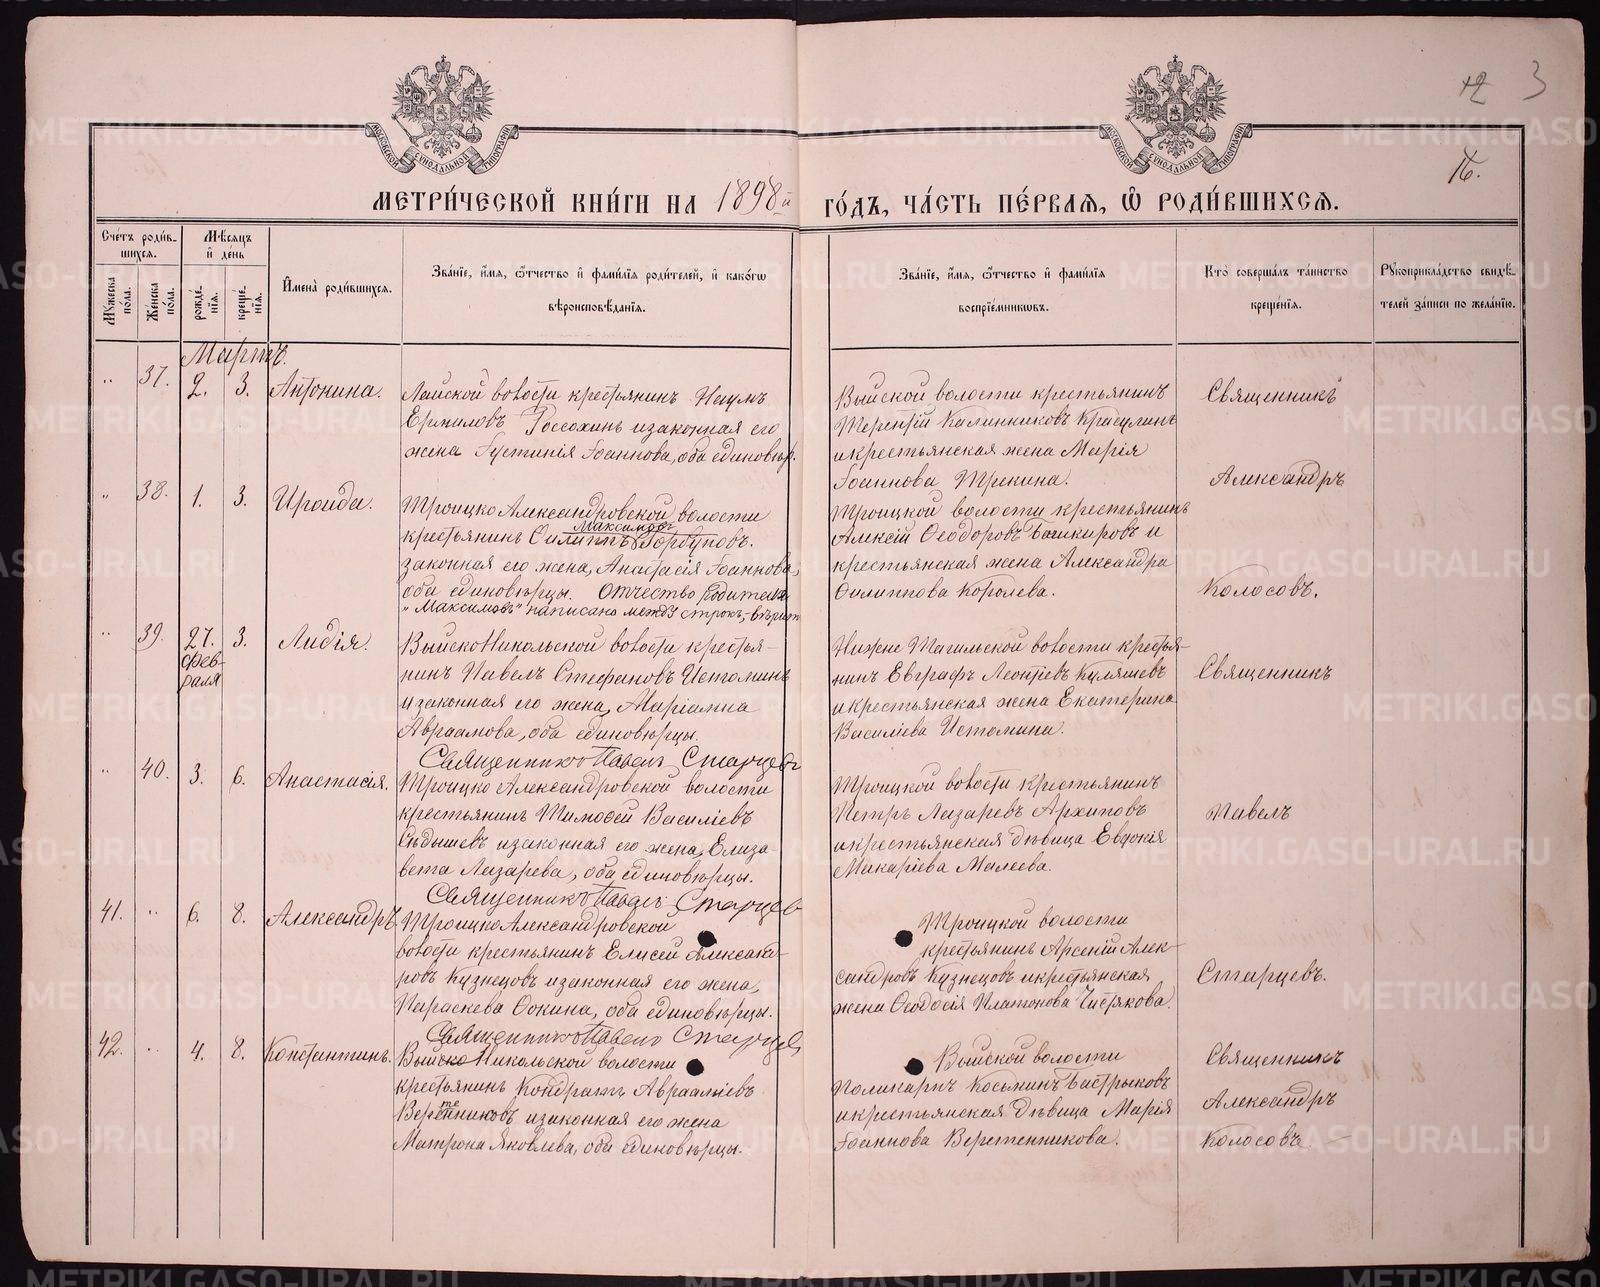 12 3
16.
МОСКОВСКОЙ СѴНОДАЛЬНОЙ ТИПОГРАФІИ
МОСКОВСКОЙ СѴНОДАЛЬНОЙ ТИПОГРАФІИ
МЕТРИ́ЧЕСКОЙ КНИ́ГИ НА 1898й ГО́ДЪ, ЧА́СТЬ ПЕ́РВАѦ, Ѡ҆ РОДИ́ВШИХСѦ.
Счетъ роди́вшихсѧ.
Мꙋжеска по́ла.
Женска по́ла.
Мѣсѧцъ и҆ де́нь
рожде́нїѧ.
креще́нїѧ.
И҆мена̀ роди́вшихсѧ.
Зва́нїе, и҆́мѧ, ѻ҆́тчество и҆ фами́лїѧ роди́телей, и҆ како́гѡ
вѣроисповѣ́данїѧ.
Зва́нїе, и҆́мѧ, ѻ҆́тчество и҆ фами́лїѧ
воспрїе́мникѡвъ.
Кто̀ соверша́лъ та́инство
креще́нїѧ.
Рꙋкоприкла́дство свидѣ́телей за́писи по жела́нїю.
Мартъ.
" 37. 2. 3. Антонина.
Лайской волости крестьянинъ Наумъ
Ермиловъ Россохинъ и законная его
жена Іустинія Іоаннова, оба единовѣр.
Выйской волости крестьянинъ
Терентій Калинниковъ Красулинъ
и крестьянская жена Марія
Іоаннова Трекина.
Священникъ
Александръ
" 38. 1. 3. Ироида.
Троицко Александровской волости
крестьянинъ Филиппъ Максимовъ Горбуновъ.
законная его жена, Анастасія Іоаннова,
оба единовѣрцы. Отчество родителя
"Максимовъ" написано между строкъ, вѣрить
Троицкой волости крестьянинъ
Алексій Ѳеодоровъ Башкировъ и
крестьянская жена Александра
Филиппова Королева.
Колосовъ.
" 39. 27. февраля 3. Лидія.
Выйско Никольской волости крестьянинъ Павелъ Стефановъ Истоминъ
и законная его жена, Маріамна
Авраамова, оба единовѣрцы.
Священникъ Павелъ Старцевъ
Нижне Тагильской волости крестьянинъ Евграфъ Леонтіевъ Куляшевъ
и крестьянская жена Екатерина
Василіева Истомина.
Священникъ
" 40. 3. 6. Анастасія.
Троицко Александровской волости
крестьянинъ Тимоѳей Василіевъ
Сѣдышевъ и законная его жена, Елизавета Лазарева, оба единовѣрцы.
Священникъ Павелъ Старцевъ
Троицкой волости крестьянинъ
Петръ Лазаревъ Архиповъ
и крестьянская дѣвица Евдокія
Макаріева Малеева.
Павелъ
41. " 6. 8. Александръ
Троицко Александровской
волости крестьянинъ Елисей Александровъ Кузнецовъ и законная его жена,
Параскева Фокина, оба единовѣрцы.
Священникъ Павелъ Старцевъ
Троицкой волости
крестьянинъ Арсеній Александровъ Кузнецовъ и крестьянская
жена Ѳеодосія Платонова Чистякова.
Старцевъ.
42. " 4. 8. Константинъ.
Выйско Никольской волости
крестьянинъ Кондратъ Авраамиевъ
Веретенниковъ и законная его жена
Матрона Яковлева, оба единовѣрцы.
Выйской волости
Поликарпъ Косьминъ Бастрыковъ
и крестьянская дѣвица Марія
Іоаннова Веретенникова.
Священникъ
Александръ
Колосовъ.
METRIKI.GASO-URAL.RU